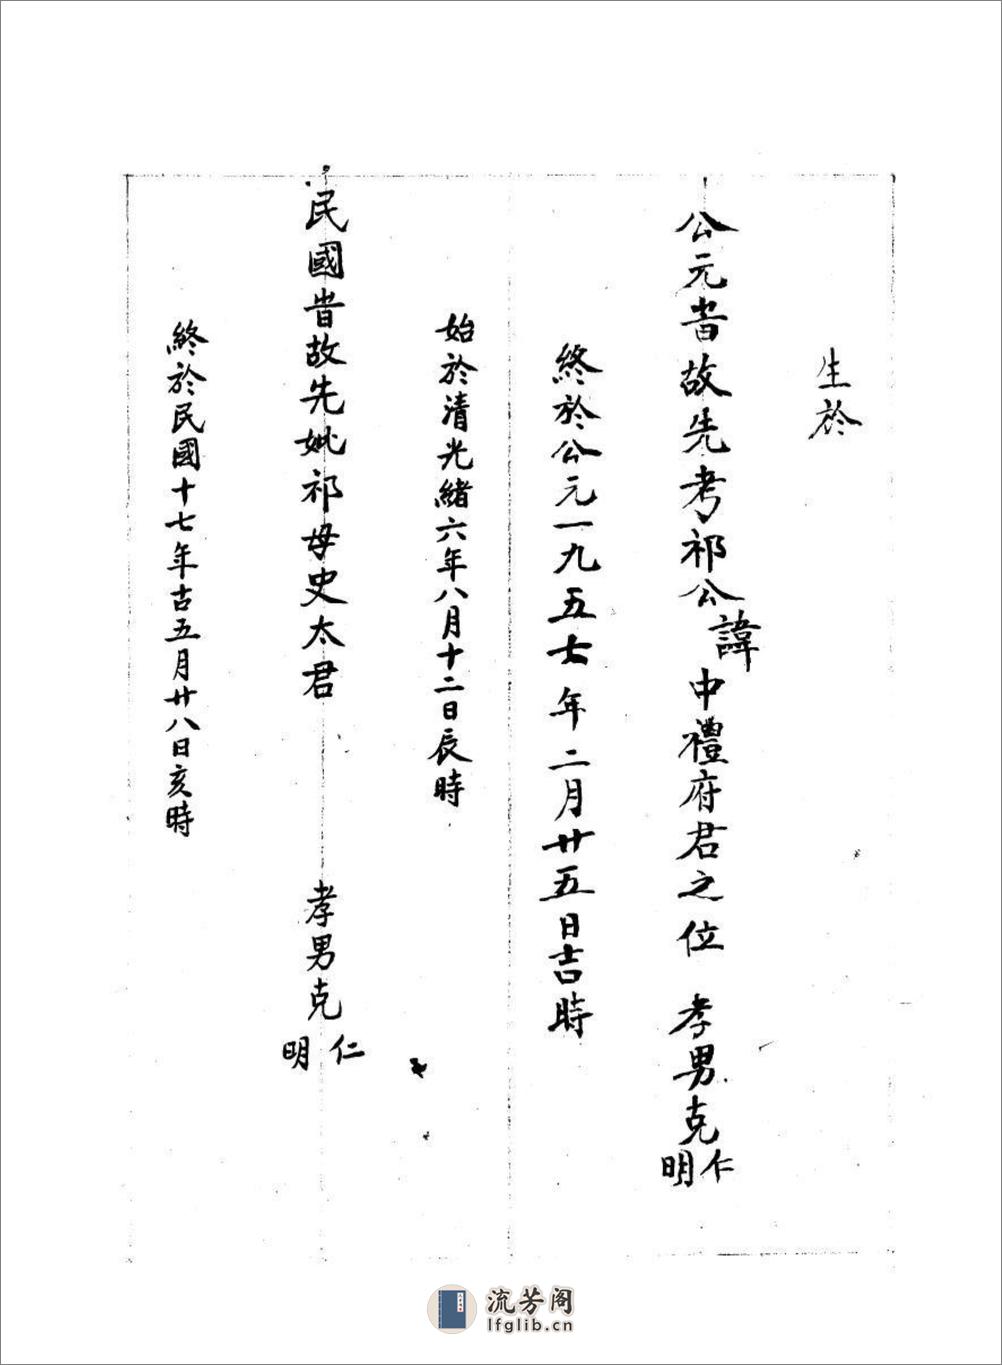 生於
公元昔故先考祁公諱中禮府君之位 孝男克仁明
終於公元一九五七年二月廿五日吉時
始於清光緒六年八月十二日辰時
民國昔故先妣祁母史太君 孝男克仁明
終於民國十七年古五月廿八日亥時
流芳阁
lfglib.cn